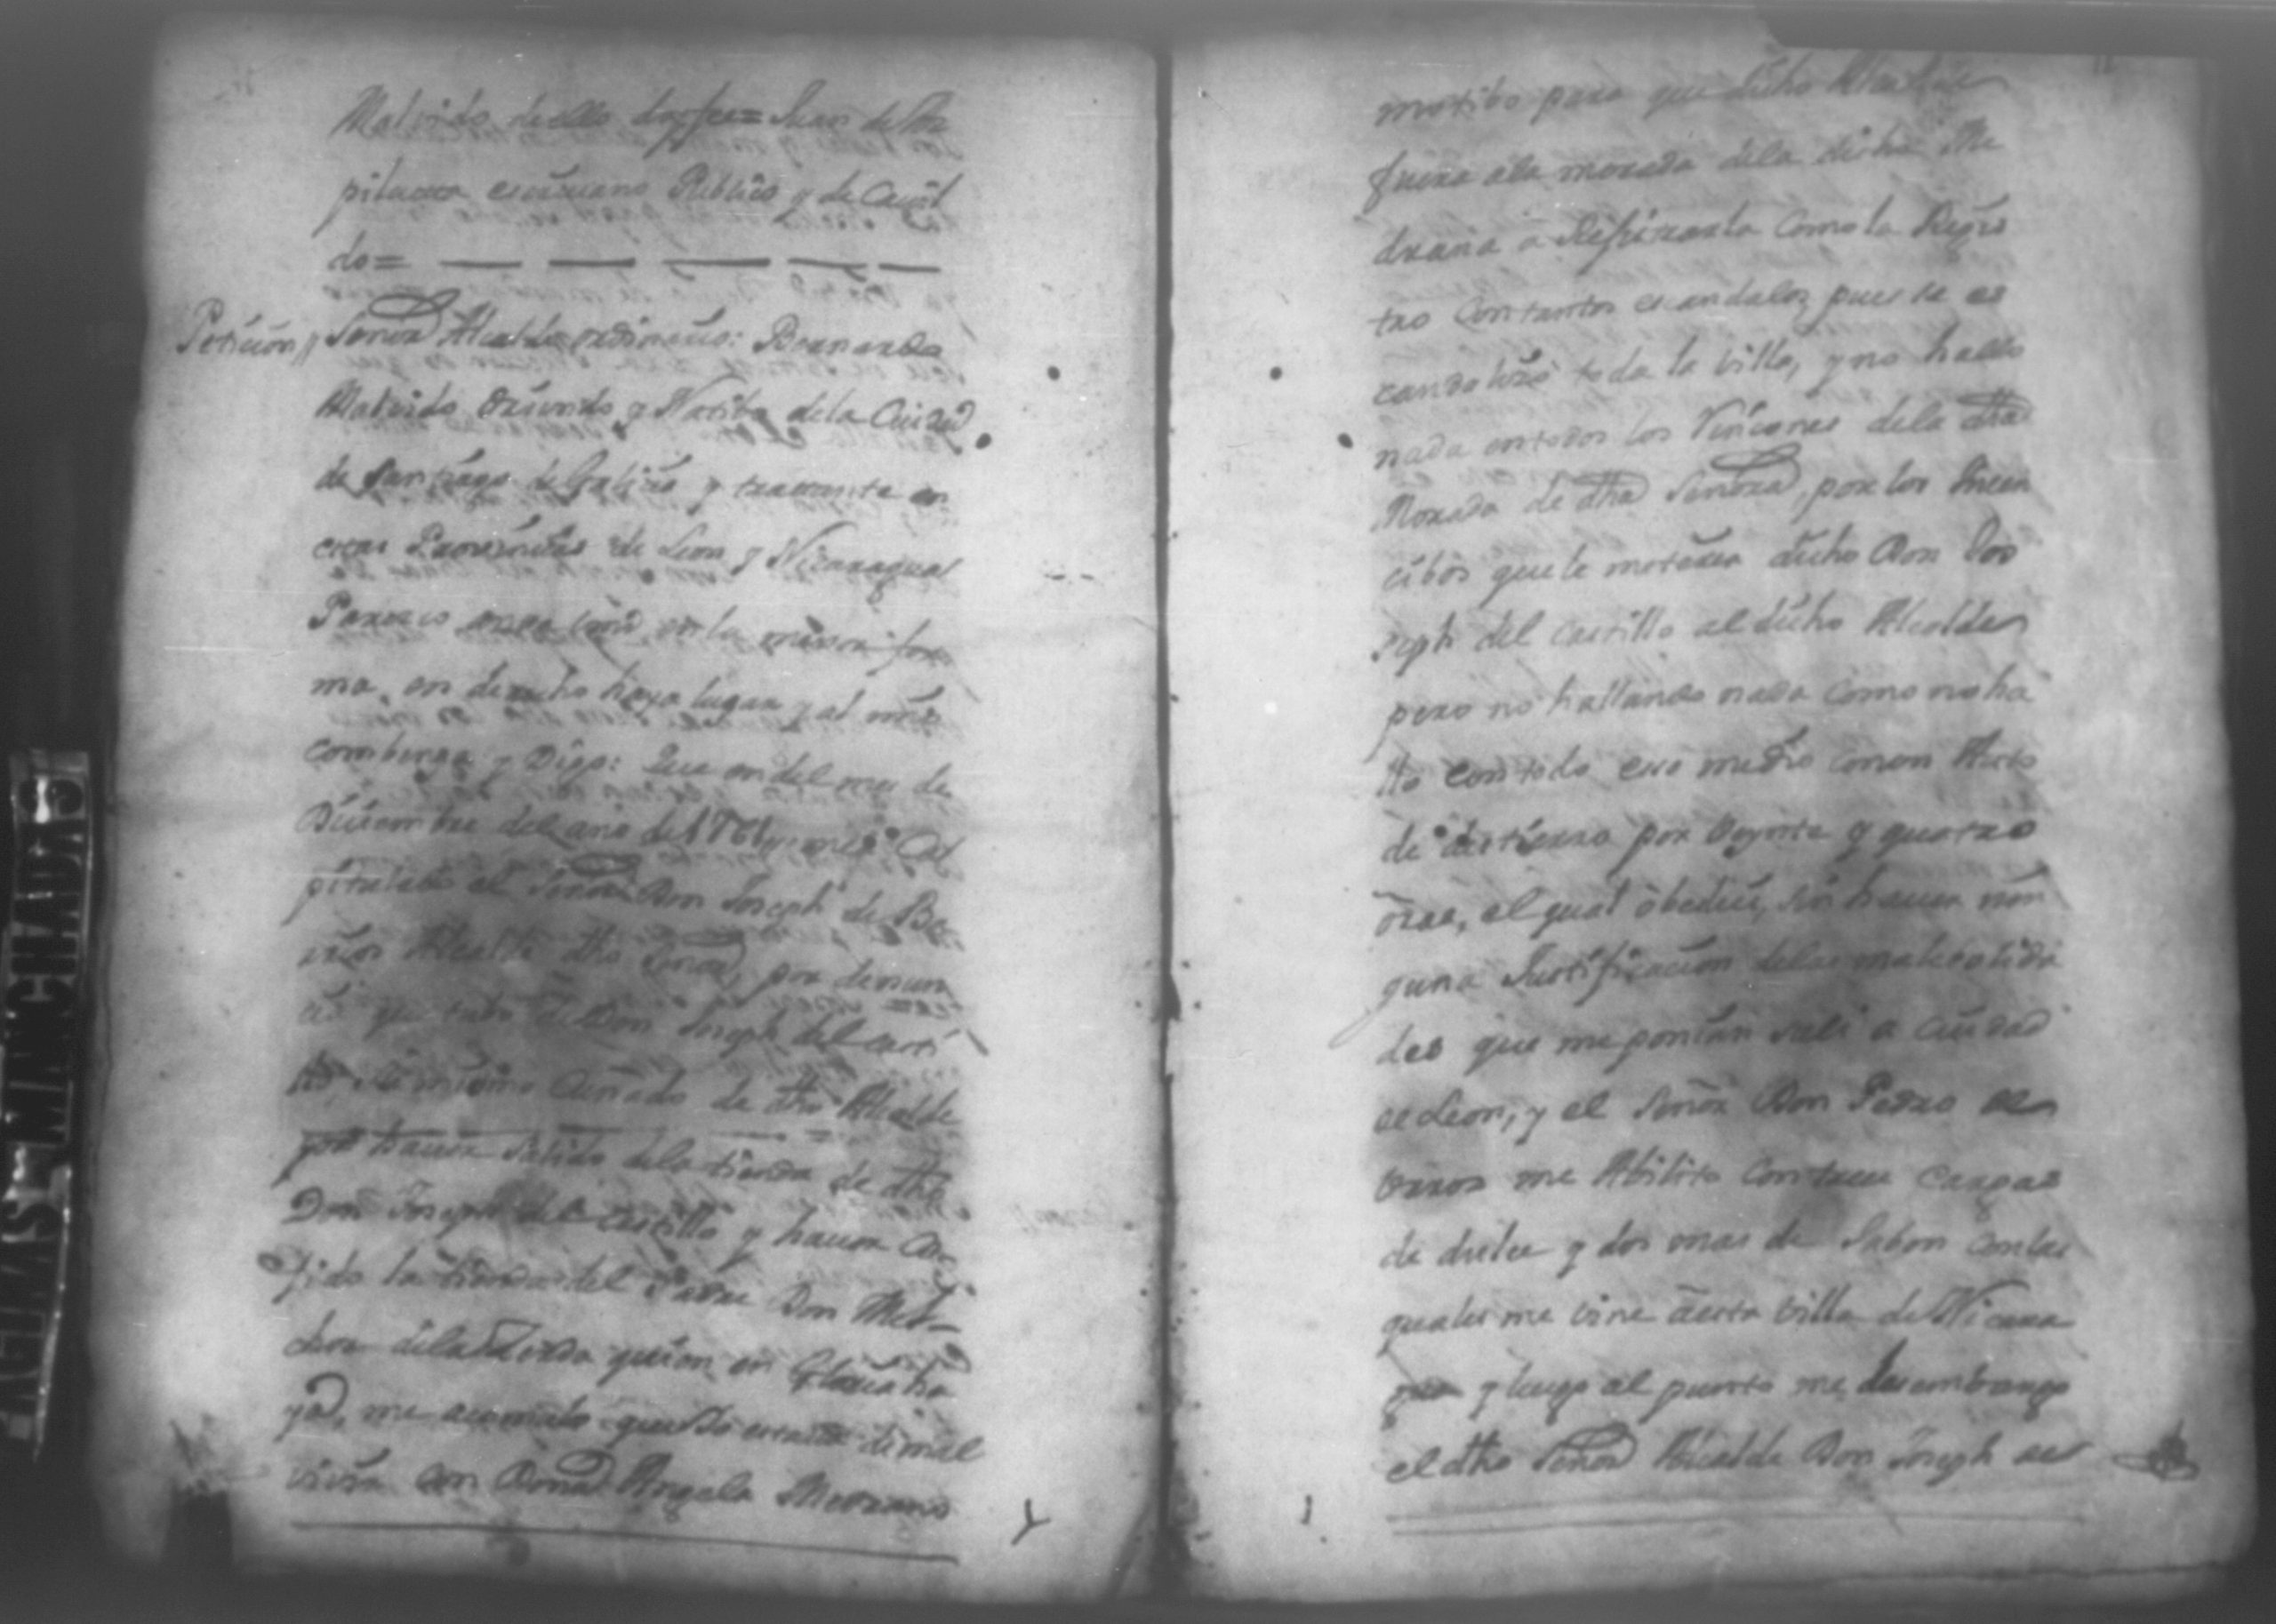 Madrido de ello doy fee = Juan de
pitarra escriuano Publico y de Cauil
do =
Peticion // Señor Alcalde ordinario: Bernardo
Madrido Oriundo y Natibo dela Ciudad
de Santiago de Galicia y tratante en
estas Provincias de Leon y Nicaragua
Parezco en la mexor for
ma, en derecho haya lugar y al mio
combenga y Digo: Que en del mes de
Diciembre del año de 1761
el Señor Don Joseph de
Alcalde dho Señor, por denun
cia que tubo de Don Joseph del Casti
llo, Cuñado de dho Alcalde
por hauer salido dela tienda de dho
Don Joseph del Castillo y hauer
la tienda del Padre Don Mel-
chor dela Zerda quien en Gloria ha
ya, me acomulo que Yo estaua de mal
viuir con Doña Angela Medrano
motibo para que dicho Alcalde
fuera ala morada dela dicha Me
drana a Rexistrarla como la Rexis
tro con tantos escandalos, pues se es
candalizo toda la billa, y no hallo
nada en todos los Rincones dela dha
Morada de dha Señora, por los
cibos que le metiera dicho Don Jos
seph del Castillo al dicho Alcalde
pero no hallando nada como no ha
llo con todo eso me dio con un Auto
de destierro por Veynte y quatro
oras, el qual obedeci, sin hauer nin
guna Justificacion delas
des que me ponian sali a Ciudad
de Leon, y el Señor Don Pedro de
me Abilito con trece cargas
de dulce y dos mas de Jabon con las
quales me vine a esta billa de Nicara
gua y luego al punto me desembargo
el dho Señor Alcalde Don Joseph de